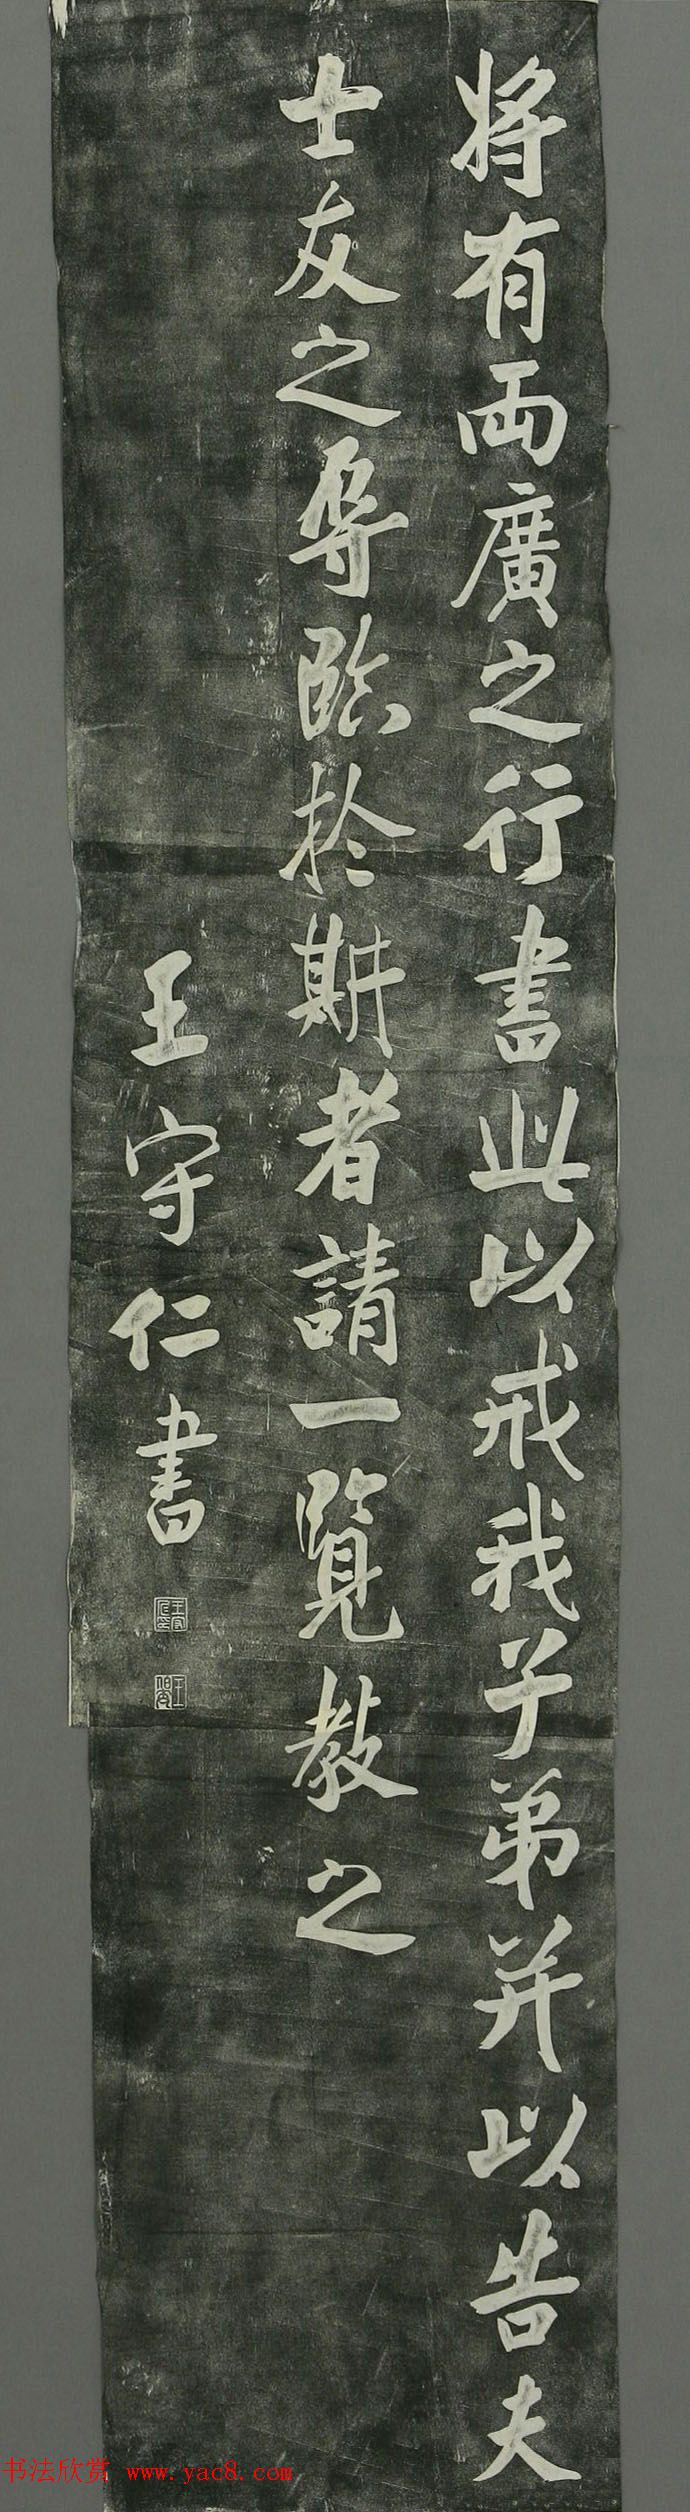 将有两廣之行書此以戒我子弟并以告夫
士友之辱臨於斯者請一覽教之
王守仁書
书法欣赏 www.yac8.com